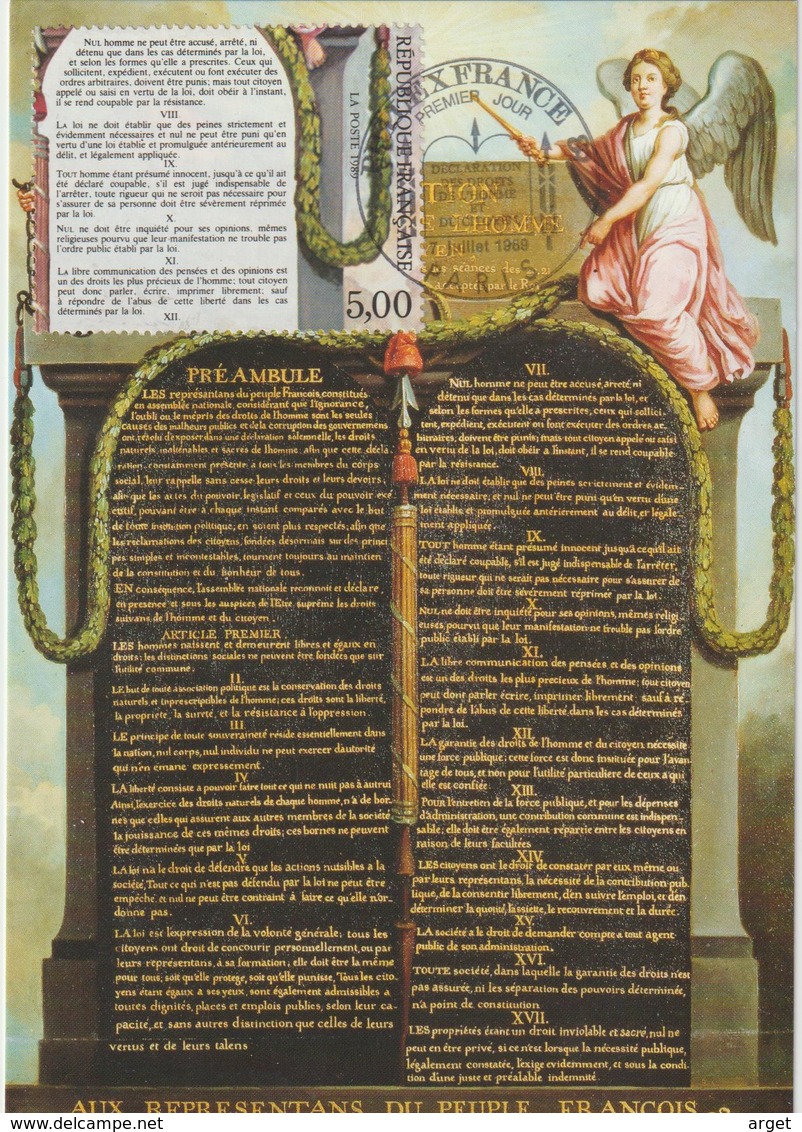 NUL homme ne peut être accusé, arrêté, ni
détenu que dans les cas déterminés par la loi,
et selon les formes qu'elle a prescrites. Ceux qui
sollicitent, expédient, exécutent ou font exécuter des
ordres arbitraires, doivent être punis; mais tout citoyen
appelé ou saisi en vertu de la loi, doit obéir à l'instant,
il se rend coupable par la résistance.
VIII.
LA loi ne doit établir que des peines strictement et
évidemment nécessaires et nul ne peut être puni qu'en
vertu d'une loi établie et promulguée antérieurement au
délit, et légalement appliquée.
IX.
TOUT homme étant présumé innocent, jusqu'à ce qu'il ait
été déclaré coupable, s'il est jugé indispensable de
l'arrêter, toute rigueur qui ne serait pas nécessaire pour
s'assurer de sa personne doit être sévèrement réprimée
par la loi.
X.
NUL ne doit être inquiété pour ses opinions, mêmes
religieuses pourvu que leur manifestation ne trouble pas
l'ordre public établi par la loi.
XI.
LA libre communication des pensées et des opinions est
un des droits les plus précieux de l'homme; tout citoyen
peut donc parler, écrire, imprimer librement; sauf
à répondre de l'abus de cette liberté dans les cas
déterminés par la loi.
XII.
RÉPUBLIQUE FRANÇAISE
LA POSTE 1989
5,00
EX FRANCE
PREMIER JOUR
DÉCLARATION
DES DROITS
DE L'HOMME
ET
DU CITOYEN
7 juillet 1989
PARIS
HOMME
EN
les séances des 21
accepté par le Roi
PRÉAMBULE
LES représntans du peuple François, constitués
en assemblée nationale, considérant que l'ignorance,
l'oubli ou le mépris des droits de l'homme sont les seules
causes des malheurs publics et de la corruption des gouvernemens
ont résolu d'exposer, dans une déclaration solemnelle, les droits
naturels, inaliénables et sacrés de l'homme: afin que cette décla
ration, constamment présente a tous les membres du corps
social, leur rappelle sans cesse leurs droits et leurs devoirs,
afin que les actes du pouvoir législatif et ceux du pouvoir exé
cutif, pouvant être à chaque instant comparés avec le but
de toute institution politique, en soient plus respectés; afin que
les réclamations des citoyens, fondées désormais sur des princi
pes simples et incontestables, tournent toujours au maintien
de la constitution et du bonheur de tous.
EN conséquence, l'assemblée nationale reconnoit et déclare,
en présence et sous les auspices de l'Etre suprême les droits
suivans de l'homme et du citoyen.
ARTICLE PREMIER
LES hommes naissent et demeurent libres et égaux en
droits; les distinctions sociales ne peuvent être fondées que sur
l'utilité commune.
II.
LE but de toute association politique est la conservation des droits
naturels et inprescriptibles de l'homme; ces droits sont la liberté,
la propriété, la sureté, et la résistance à l'oppression.
III
LE principe de toute souveraineté réside essentiellement dans
la nation, nul corps, nul individu ne peut exercer d'autorité
qui n'en émane expressement.
IV
LA liberté consiste a pouvoir faire tout ce qui ne nuit pas à autrui
Ainsi, l'exercice des droits naturels de chaque homme, n'a de bor
nes que celles qui assurent aux autres membres de la société
la jouissance de ces mêmes droits; ces bornes ne peuvent
être déterminées que par la loi
V.
LA loi n'a le droit de défendre que les actions nuisibles a la
société. Tout ce qui n'est pas défendu par la loi ne peut être
empêché, et nul ne peut être contraint à faire ce qu'elle n'or-
donne pas.
VI.
LA loi est l'expression de la volonté générale; tous les
citoyens ont droit de concourir personnellement, ou par
leurs représentans, à sa formation; elle doit être la même
pour tous, soit qu'elle protege, soit qu'elle punisse, Tous les cito-
yens étant égaux a ses yeux, sont également admissibles a
toutes dignités, places et emplois publics, selon leur ca-
pacité, et sans autres distinction que celles de leurs
vertus et de leurs talens
VII.
NUL homme ne peut être accusé, arreté, ni
détenu que dans les cas déterminés par la loi, et
selon les formes qu'elle a prescrites, ceux qui sollici-
tent, expédient, exécutent ou font exécuter des ordres ar-
bitraires, doivent être punis; mais tout citoyen appelé ou saisi
en vertu de la loi, doit obéir à l'instant, il se rend coupable
par la résistance.
VIII.
LA loi ne doit établir que des peines strictement et évidem-
ment nécessaires, et nul ne peut être puni qu'en vertu d'une
loi établie et promulguée antérierement au délit, et légale-
ment appliquée.
IX.
TOUT homme étant présumé innocent jusqu'à ce qu'il ait
été déclaré coupable, s'il est jugé indispensable de l'arrêter,
toute rigueur qui ne serait pas nécessaire pour s'assurer de
sa personne doit être sévèrement réprimée par la loi.
X.
NUL ne doit être inquiété pour ses opinions, mêmes religi-
euses, pourvu que leur manifestation ne trouble pas l'ordre
public établi par la loi.
XI.
LA libre communication des pensées et des opinions
est un des droits les plus précieux de l'homme; tout citoyen
peut donc parler, écrire, imprimer librement: sauf à ré-
pondre de l'abus de cette liberté, dans les cas déterminés
par la loi.
XII.
LA garantie des droits de l'homme et du citoyen nécessite
une force publique; cette force est donc instituée pour l'avan
tage de tous, et non pour l'utilité particuliere de ceux a qui
elle est confiée.
XIII.
POUR l'entretien de la force publique, et pour les dépenses
d'administration, une contribution commune est indispen-
sable; elle doit être également répartie entre les citoyens en
raison de leurs facultées
XIV.
LES citoyens ont le droit de constater par eux même ou
par leurs représentans, la nécessité de la contribution pub-
lique, de la consentir librement, d'en suivre l'emploi, et d'en
déterminer la quotité, l'assiette, le recouvrement et la durée.
XV.
LA société a le droit de demander compte a tout agent
public de son administration.
XVI.
TOUTE société, dans laquelle la garantie des droits n'est
pas assurée, ni les séparation des pouvoirs déterminée,
n'a point de constitution
XVII.
LES propriétés étant un droit inviolable et sacré, nul ne
peut en être privé, si ce n'est lorsque la nécessité publique,
légalement constatée, l'exige evidemment, et sous la condi-
tion d'une juste et préalable indemnité.
AUX REPRESENTANS DU PEUPLE FRANCOIS
www.delcampe.net
arget